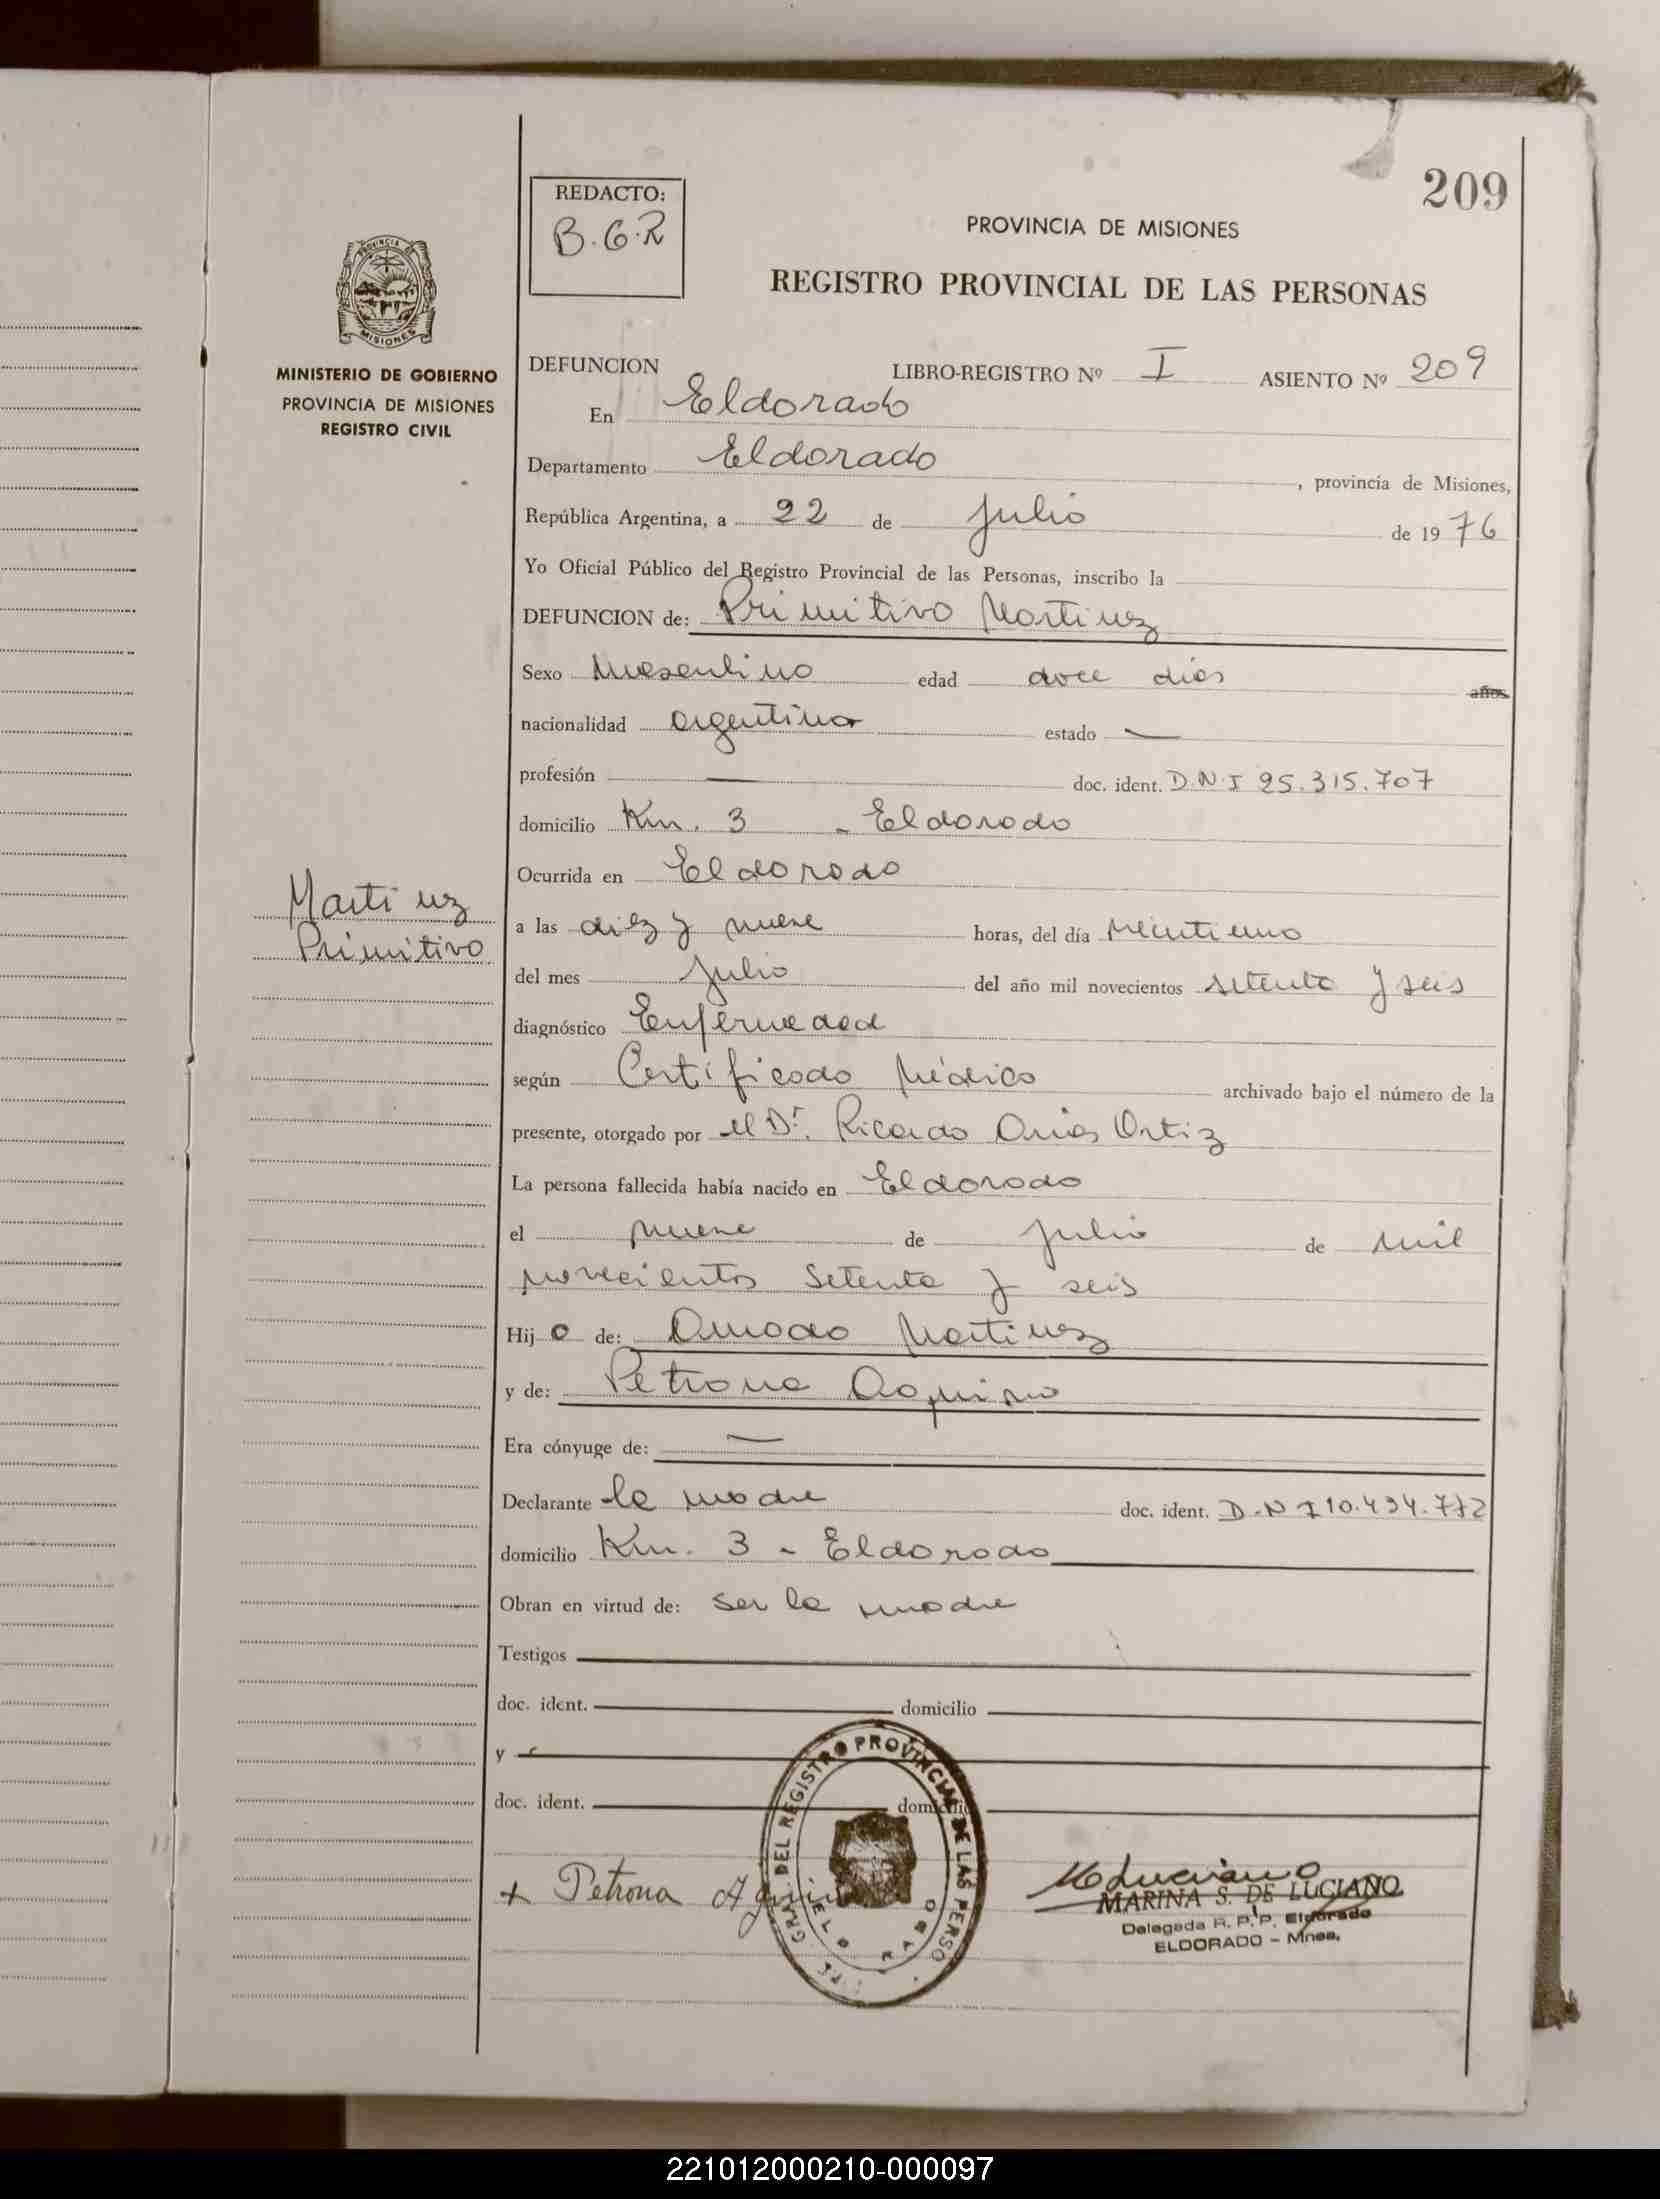 209
REDACTO:
B.G.R
PROVINCIA DE MISIONES
REGISTRO PROVINCIAL DE LAS PERSONAS
PROVINCIA DE
MISIONES
MINISTERIO DE GOBIERNO
PROVINCIA DE MISIONES
REGISTRO CIVIL
DEFUNCION LIBRO-REGISTRO Nº I ASIENTO Nº 209
En Eldorado
Departamento Eldorado, provincia de Misiones,
República Argentina, a 22 de julio de 1976
Yo Oficial Público del Registro Provincial de las Personas, inscribo la
DEFUNCION de: Primitivo Martinez
Sexo Masculino edad doce dias años
nacionalidad argentina estado —
profesión — doc. ident. D.N.I 25.315.707
domicilio Km. 3 - Eldorado
Ocurrida en Eldorado
Martinez
Primitivo
a las diez y nueve horas, del día veintiuno
del mes julio del año mil novecientos setenta y seis
diagnóstico Enfermedad
según Certificado Médico archivado bajo el número de la
presente, otorgado por el Dr. Ricardo Arias Ortiz
La persona fallecida había nacido en Eldorado
el nueve de julio de mil
novecientos setenta y seis
Hijo de: Amado Martinez
y de: Petrona Aquino
Era cónyuge de: —
Declarante la madre doc. ident. D.N.I 10.434.772
domicilio Km. 3 - Eldorado
Obran en virtud de: ser la madre
Testigos
doc. ident. domicilio
y
doc. ident. domicilio
GRAL. DEL REGISTRO PROVINCIAL DE LAS PERSO
ELDORADO
+ Petrona Aquino
MARINA S. DE LUCIANO
Delegada R. P. P. Eldorado
ELDORADO - Mnes.
221012000210-000097